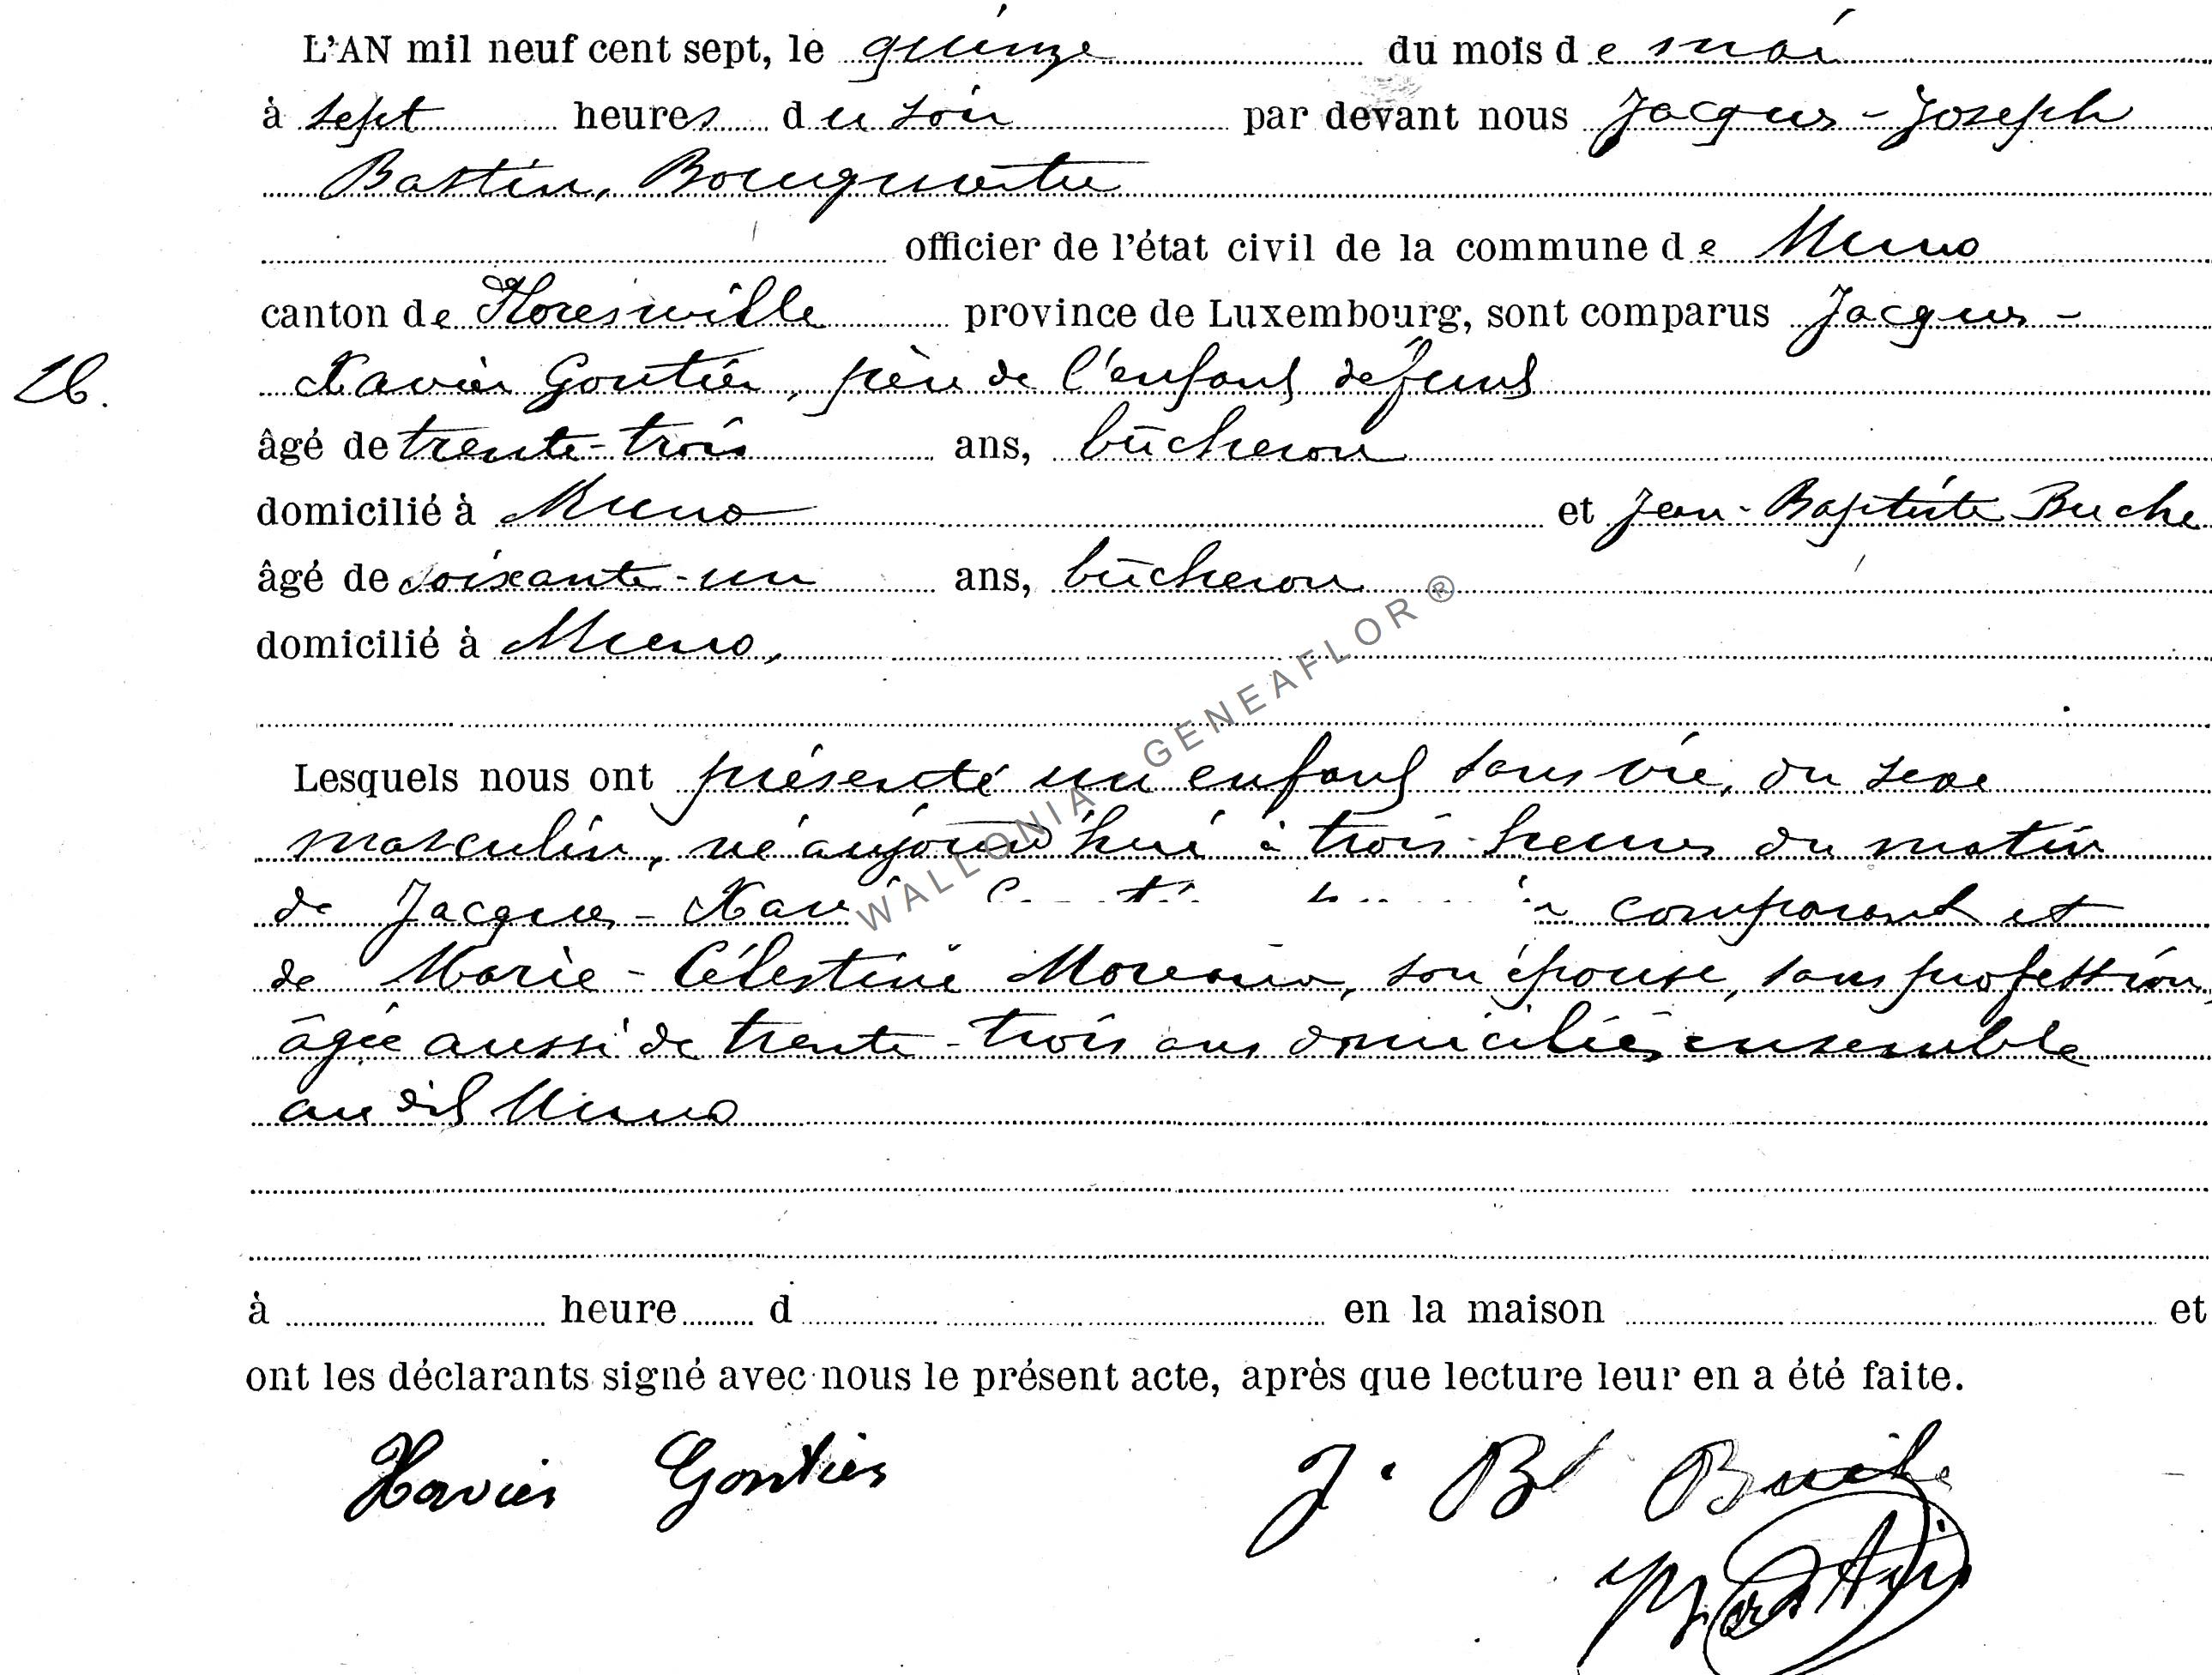 L'AN mil neuf cent sept, le quinze du mois de mai
à sept heures du soir par devant nous Jacques-Joseph
Bastin, Bourgmestre
officier de l'état civil de la commune de Muno
canton de Florenville province de Luxembourg, sont comparus Jacques-
16. Xavier Gontier, père de l'enfant défunt
âgé de trente-trois ans, bûcheron
domicilié à Muno et Jean-Baptiste Buche
âgé de soixante-un ans, bûcheron
domicilié à Muno,
Lesquels nous ont présenté un enfant sans vie, du sexe
masculin, né aujourd'hui à trois heures du matin
de Jacques-Xav comparant et
de Marie-Célestine, son épouse, sans profession,
âgée aussi de trente-trois ans domiciliés ensemble
au dit Muno
à heure d en la maison et
ont les déclarants signé avec nous le présent acte, après que lecture leur en a été faite.
Xavier Gontier J. Bt Buche
Bastin
WALLONIA - GENEAFLOR ®